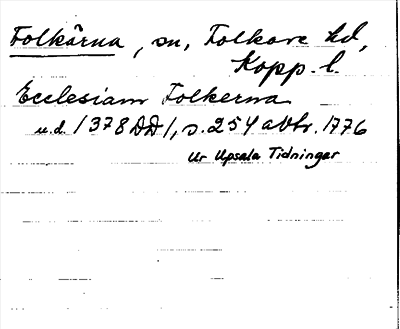 Folkärna, sn, Folkare hd,
Kopp. l.
Ecclesiam Folkerna
u.d. /1378 DD/, s. 254 avtr. 1776
Ur Upsala Tidningar